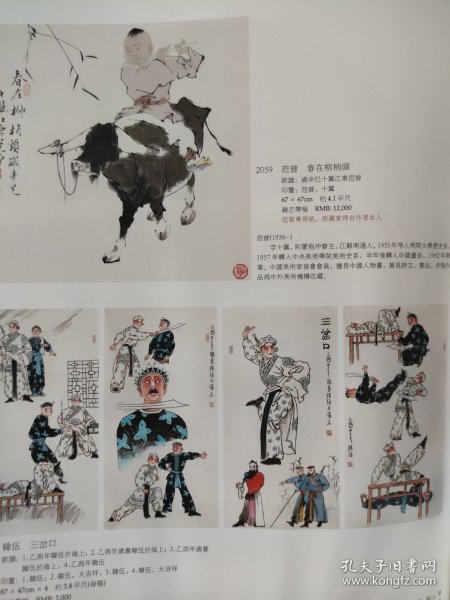 春在柳梢頭
2059 范曾 春在柳梢頭
款識：歲辛巳十翼江東范曾
印鑒：范曾，十翼
67×67cm 約4.1平尺
鏡芯帶框 RMB: 12,000
范曾專用紙，原藏家得自作者本人
范曾(1938~)
字十翼，別署抱冲齋主，江蘇南通人。1955年考人南開大學歷史系，
1957年轉人中央美術學院美術史系，半年後轉人中國畫系，1962年
業，中國美術家協會會員，擅長中國人物畫，兼長詩文、書法，多幅作
品爲中外美術機構收藏。
三岔口
韓伍 三岔口
款識：1.乙酉年韓伍於海上；2.乙酉年歲暮韓伍於海上；3.乙酉年歲暮
韓伍於海上，4.乙酉年韓伍
印鑒：1.韓伍；2.韓伍，大吉祥，3.韓伍，4.韓伍，大吉祥
87×47cm×4 約3.8平尺(每幅)
RMB: 2,000
孔夫子旧书网